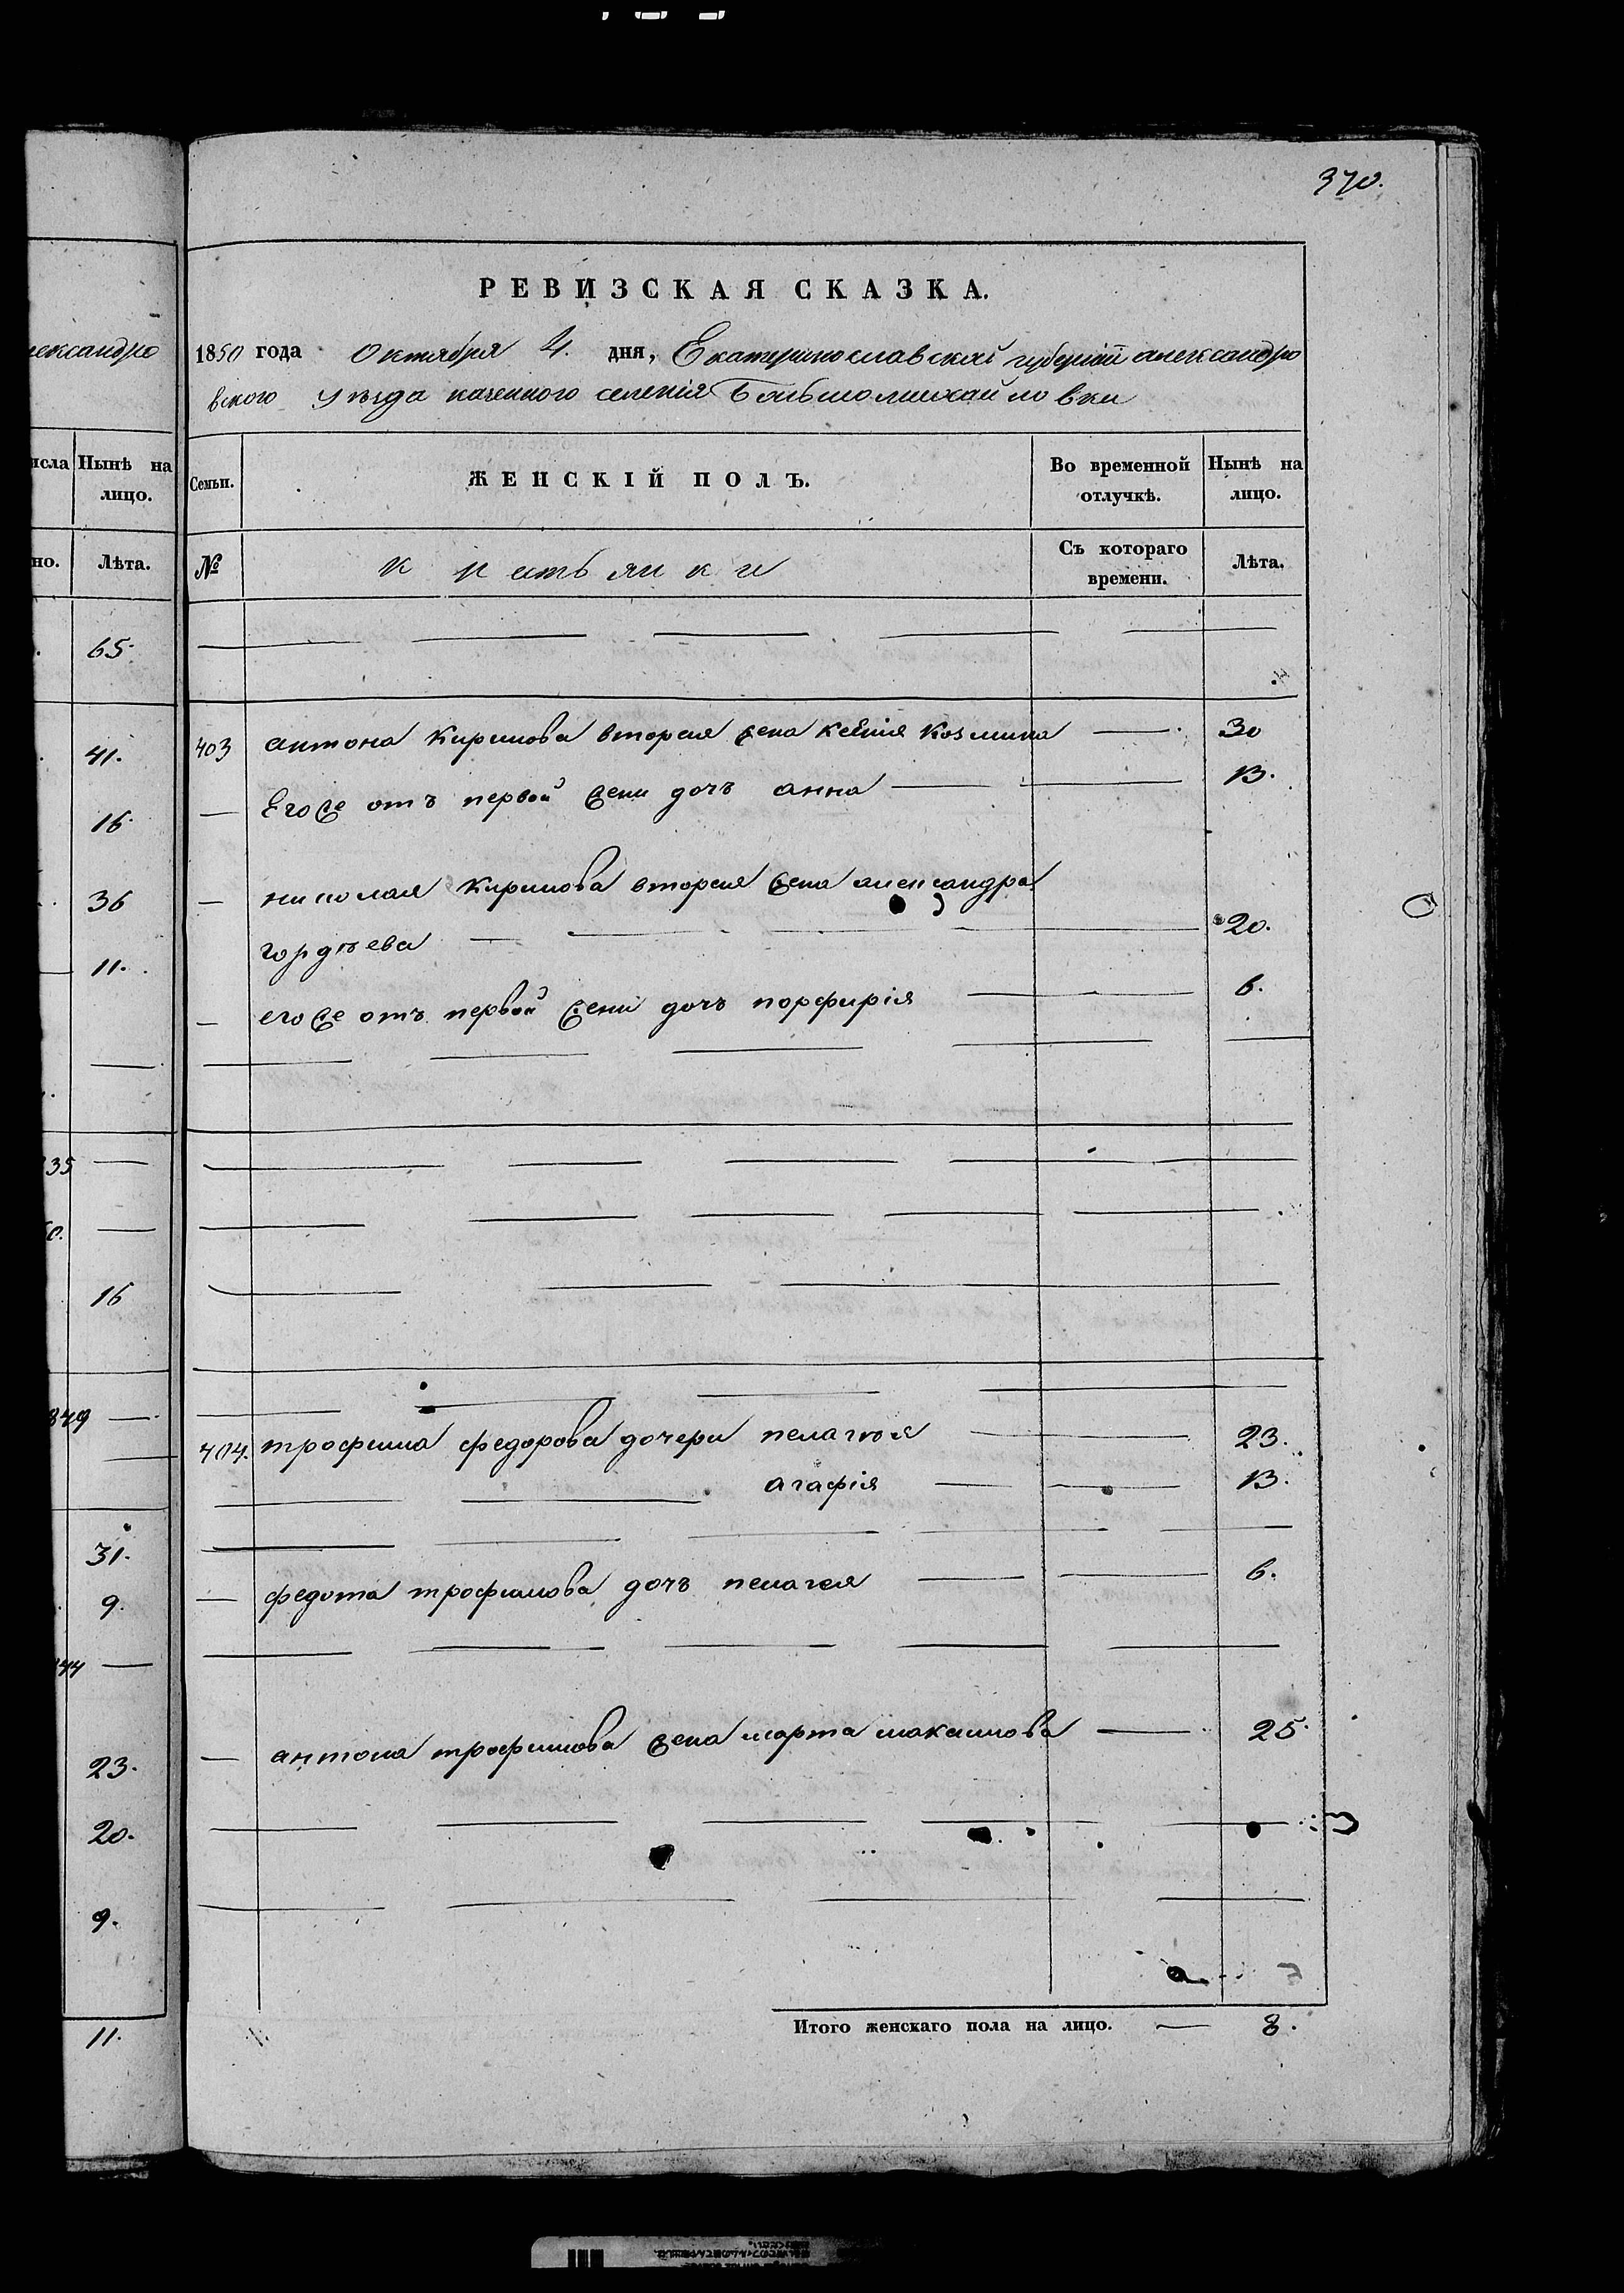 370.
РЕВИЗСКАЯ СКАЗКА.
лександро
1850 года Октября 4. дня, Екатеринославской губернии александро
вского уѣзда казенного селенія Большомихайловки
исла Нынѣ на лицо.
Семьи. ЖЕНСКІЙ ПОЛЪ. Во временной отлучкѣ. Нынѣ на лицо.
но. Лѣта.
№ Съ котораго времени. Лѣта.
65.
41.
403 антона Кирилова вторая жена ксенія Козмина 30
Егоже отъ первой жени дочь анна 13.
16.
николая Кирилова вторая жена александра
36
гордѣева 20.
11.
егоже отъ первой жени дочь порфирія 6.
35
50.
16
849
404. трофима федорова дочери пелагѣя 23.
агафія 13.
31.
федота трофимова дочь пелагея 6.
9.
44
антона трофимова жена марта макимова 25.
23.
20.
9.
Итого женскаго пола на лицо. 8.
11.